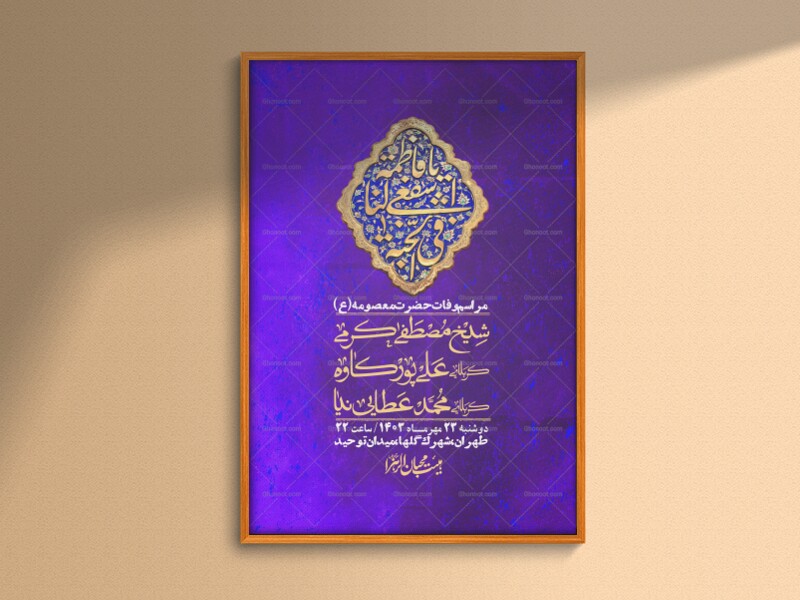 یا فاطمة
اشفعي لنا
في الجنة
مراسم وفات حضرت معصومه (ع)
شیخ مصطفی کرمی
کربلائی علی پورکاوه
کربلائی محمد عطایی نیا
دوشنبه ۲۳ مهرماه ۱۴۰۳ / ساعت ۲۲
طهران، شهرک گلها، میدان توحید
هیئت محبان الزهرا
Ghonoot.com